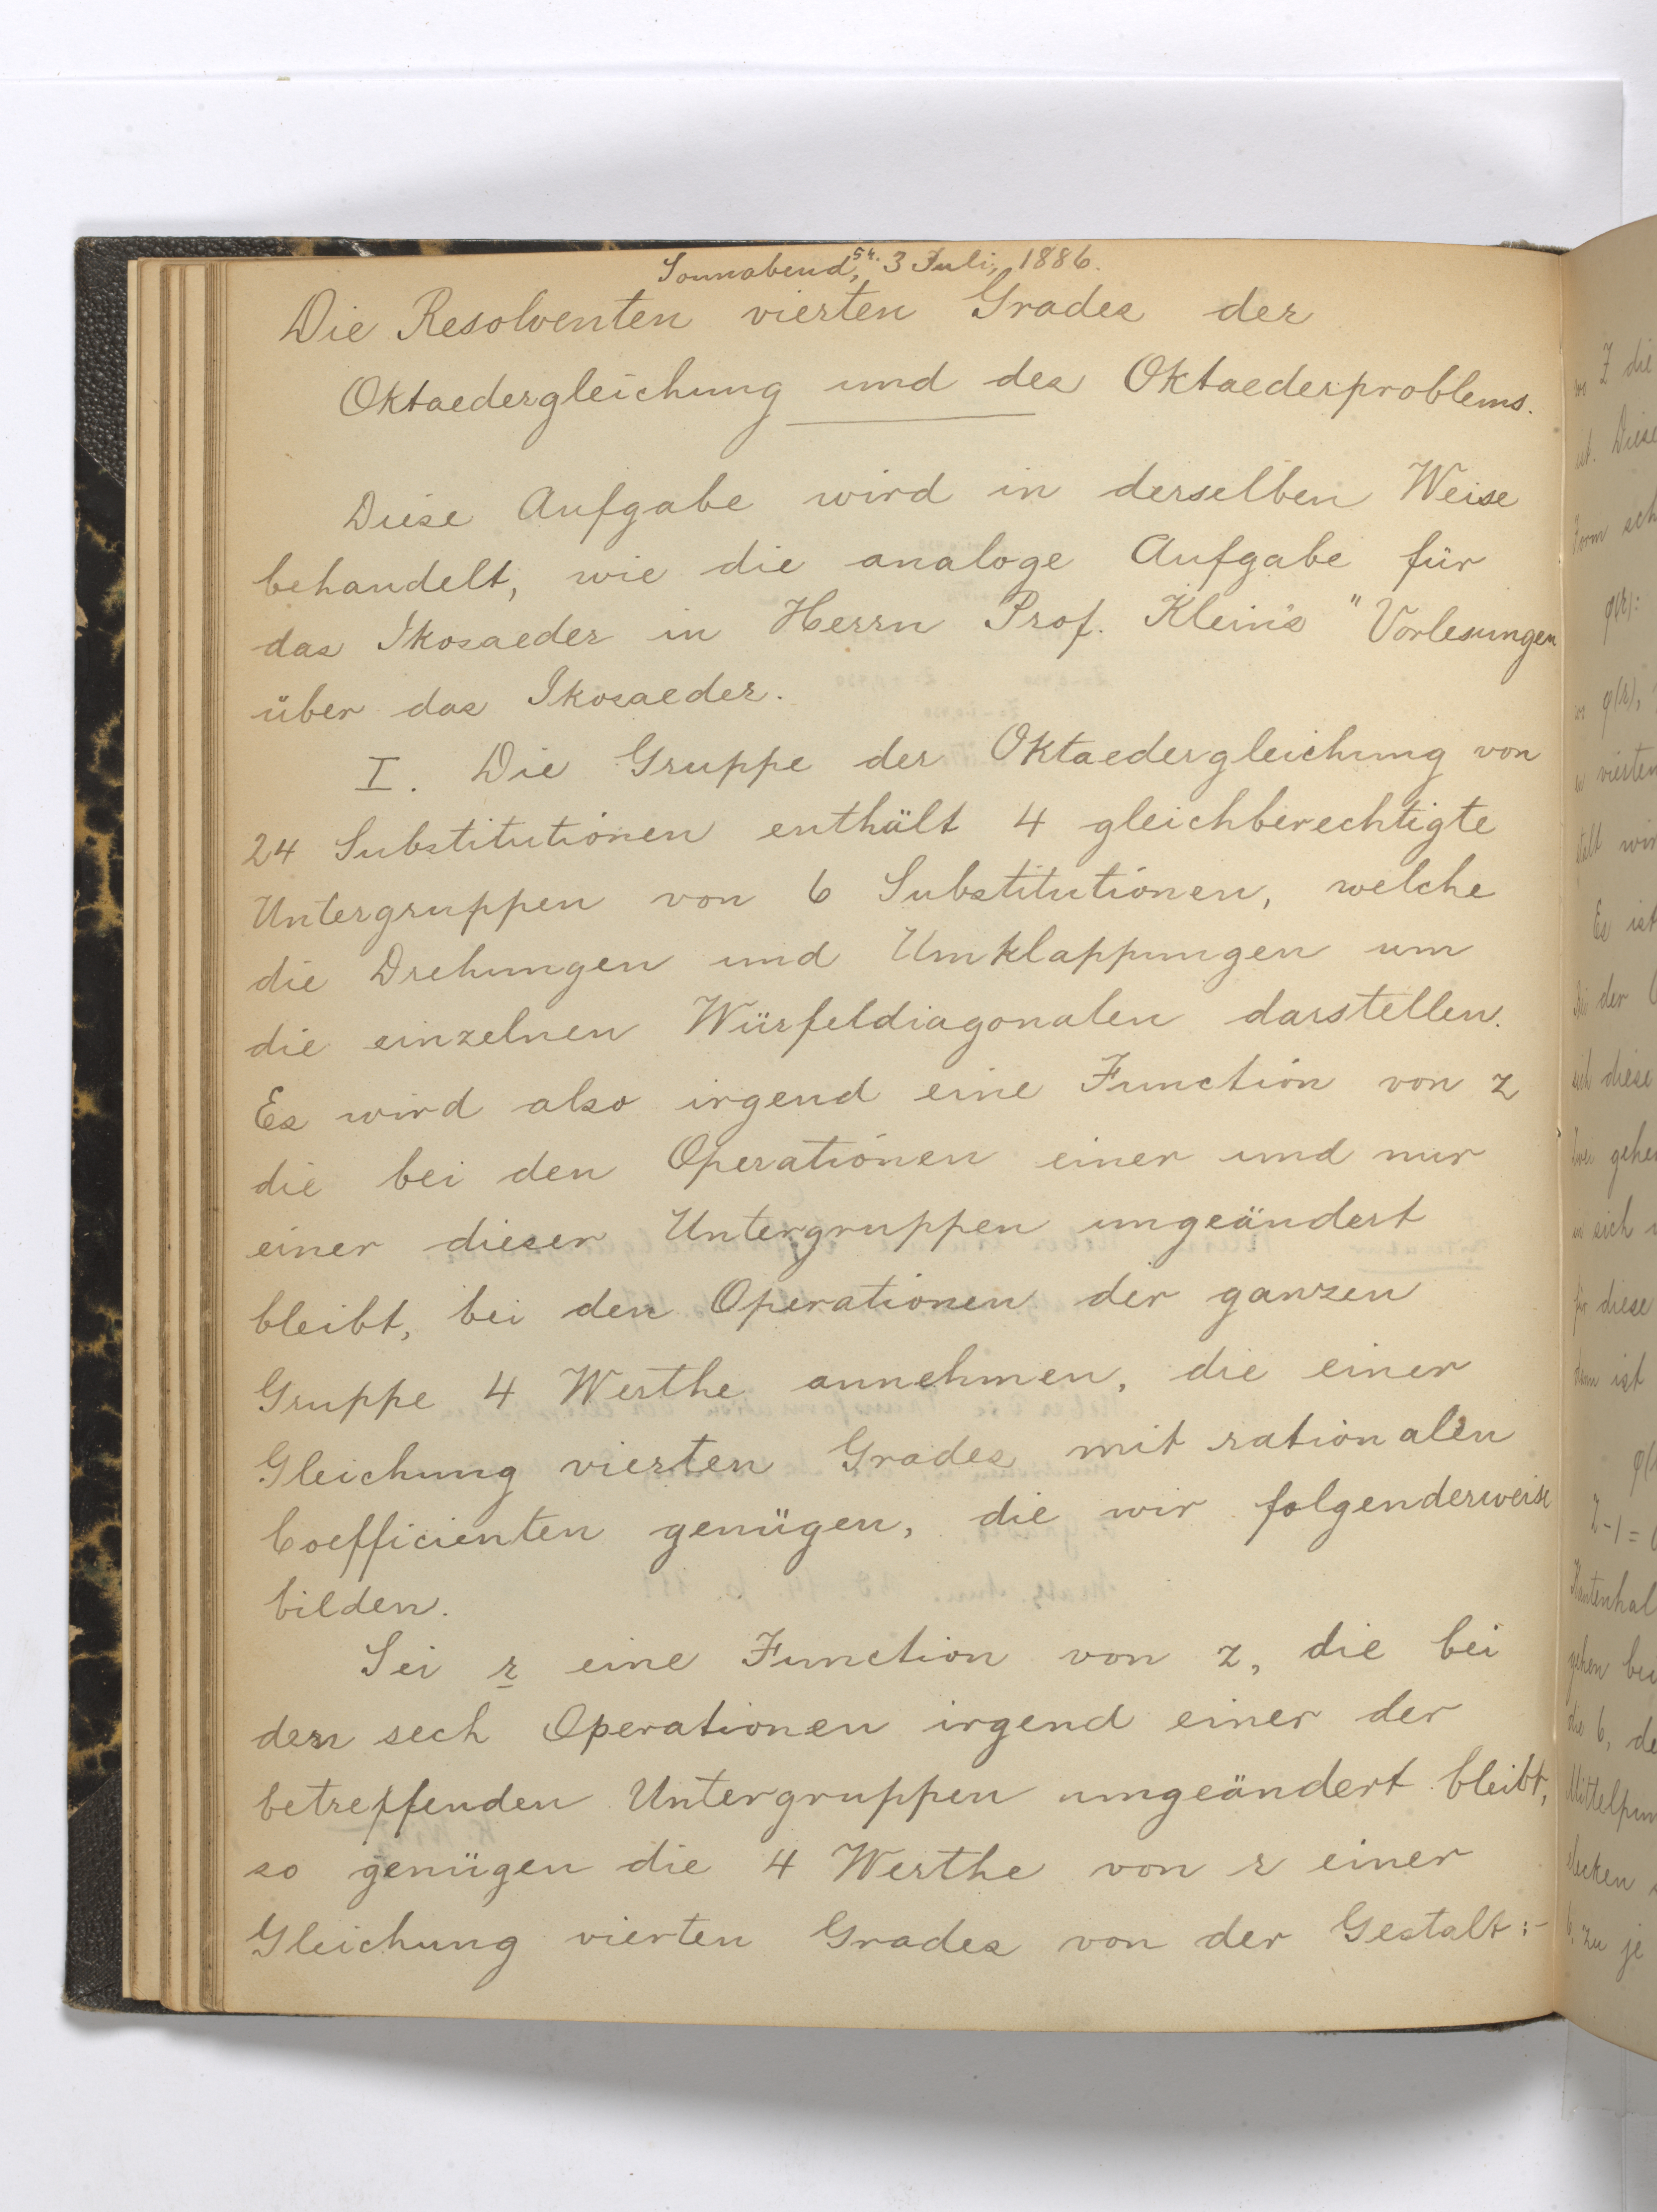 Sonnabend, 3 Juli, 1886.
Die Resolventen vierten Grades der
Oktaedergleichung und des Oktaederproblems.
Diese Aufgabe wird in derselben Weise
behandelt, wie die analoge Aufgabe für
das Ikosaeder in Herrn Prof. Klein's "Vorlesungen
über das Ikosaeder.
I. Die Gruppe der Oktaedergleichung von
24 Substitutionen enthält 4 gleichberechtigte
Untergruppen von 6 Substitutionen, welche
die Drehungen und Umklappungen um
die einzelnen Würfeldiagonalen darstellen.
Es wird also irgend eine Function von z
die bei den Operationen einer und nur
einer dieser Untergruppen ungeändert
bleibt, bei den Operationen der ganzen
Gruppe 4 Werthe annehmen, die einer
Gleichung vierten Grades mit rationalen
Coefficienten genügen, die wir folgenderweise
bilden.
Sei r eine Function von z, die bei
den sech Operationen irgend einer der
betreffenden Untergruppen ungeändert bleibt,
so genügen die 4 Werthe von r einer
Gleichung vierten Grades von der Gestalt:-
Z die
ist. Diese
Form sch
φ(r):
φ(r),
vierten
wir
Es ist
der
sich diese
gehen
sich
für diese
ist
Z-1=
gehen bei
die 6, de
zu je